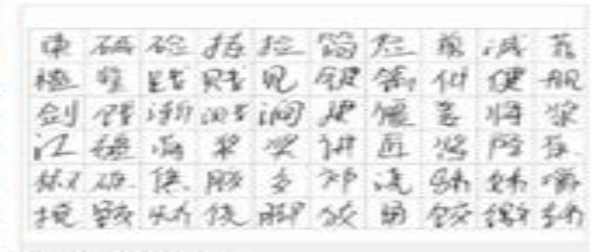 柬 碱 硷 拣 捡 简 俭 剪 减 荐
槛 鉴 践 贱 见 键 箭 件 健 舰
剑 饯 渐 溅 涧 建 僵 姜 将 浆
江 疆 蒋 桨 奖 讲 匠 酱 降 蕉
椒 礁 焦 胶 交 郊 浇 骄 娇 嚼
搅 铰 矫 侥 脚 狡 角 饺 缴 绞